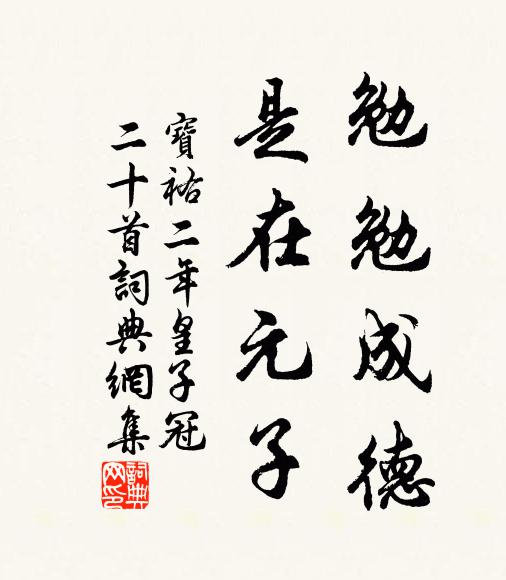 勉勉成德
是在元子
寶祐二年皇子冠
二十首詞典網集
詞典网印